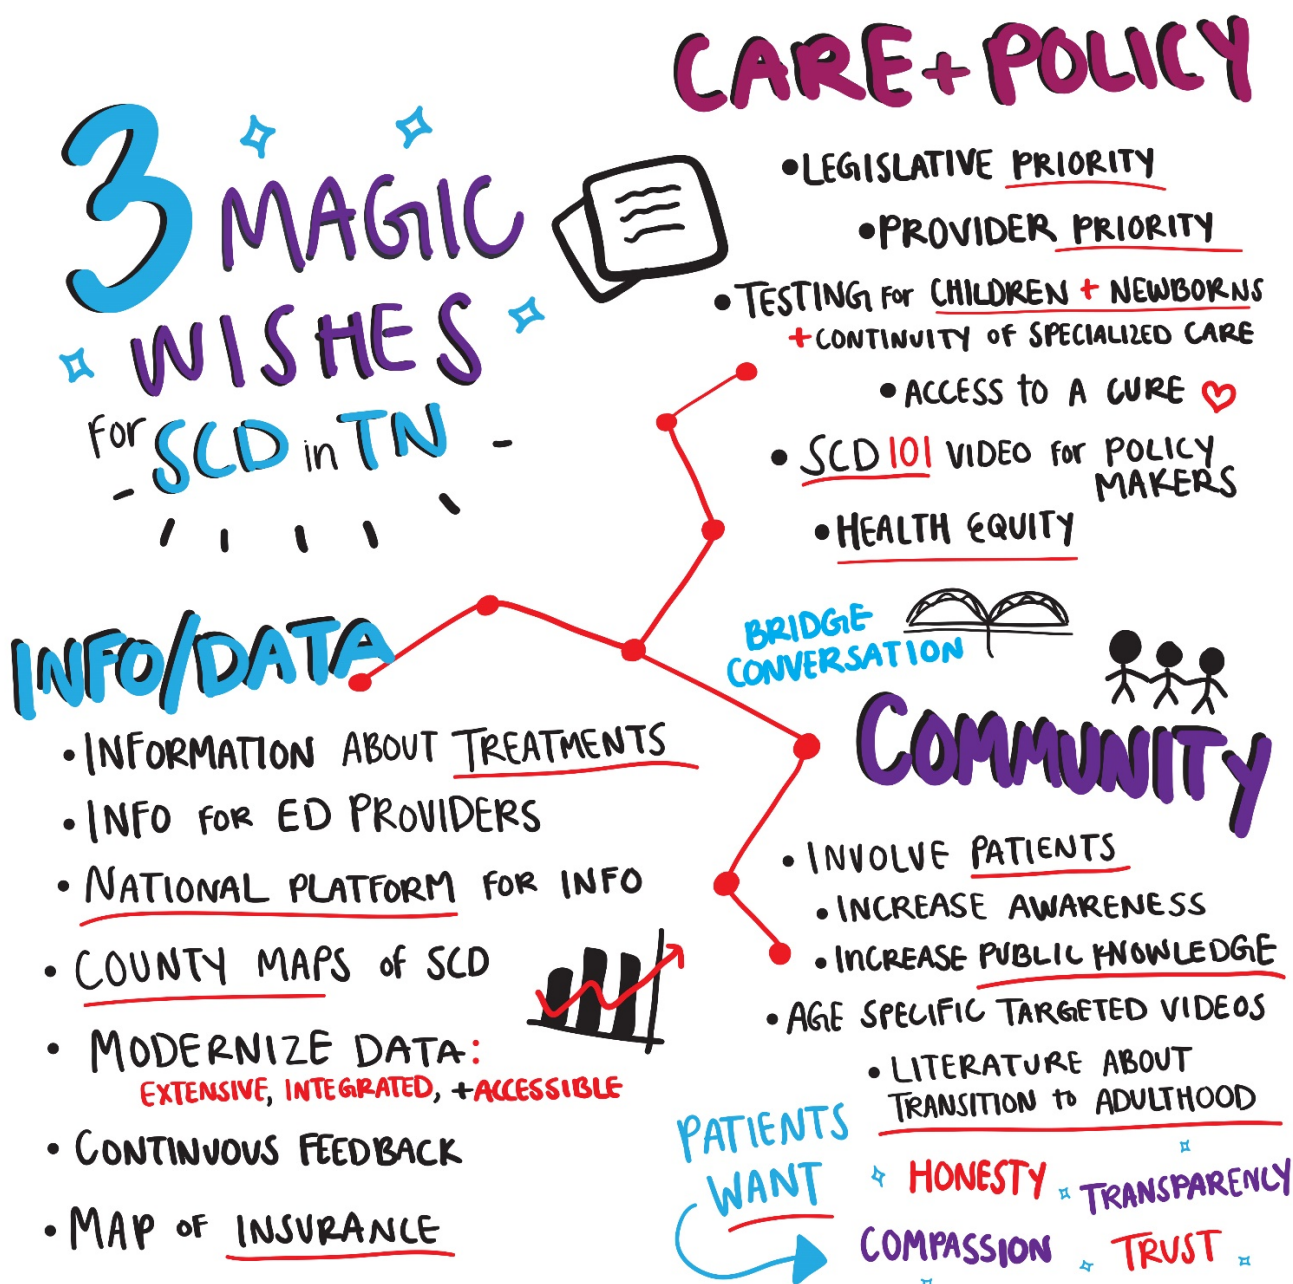 3 MAGIC
WISHES
FOR SCD in TN
CARE + POLICY
• LEGISLATIVE PRIORITY
• PROVIDER PRIORITY
• TESTING FOR CHILDREN + NEWBORNS
+ CONTINUITY OF SPECIALIZED CARE
• ACCESS to A CURE
• SCD 101 VIDEO for POLICY
MAKERS
• HEALTH EQUITY
BRIDGE
CONVERSATION
INFO/DATA
• INFORMATION ABOUT TREATMENTS
• INFO FOR ED PROVIDERS
• NATIONAL PLATFORM FOR INFO
• COUNTY MAPS of SCD
• MODERNIZE DATA:
EXTENSIVE, INTEGRATED, + ACCESSIBLE
• CONTINUOUS FEEDBACK
• MAP OF INSURANCE
COMMUNITY
• INVOLVE PATIENTS
• INCREASE AWARENESS
• INCREASE PUBLIC KNOWLEDGE
• AGE SPECIFIC TARGETED VIDEOS
• LITERATURE ABOUT
TRANSITION to ADULTHOOD
PATIENTS
WANT
HONESTY
TRANSPARENCY
COMPASSION
TRUST